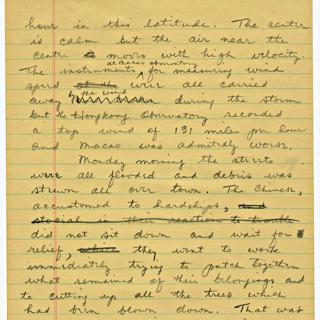 hour in this latitude. The center
is calm but the air near the
center moves with high velocity.
at Macao observatory
The instruments for measuring wind
speed were all carried
away by the wind during the storm
but the Hongkong Observatory recorded
a top wind of 131 miles per hour
and Macao was admittedly worse.
Monday morning the streets
were all flooded and debris was
strewn all over town. The Chinese,
accustomed to hardships, and
stoical in their reactions to trouble
did not sit down and wait for
relief, they went to work
immediately trying to patch together
what remained of their belongings and
to cutting up all the trees which
had been blown down. That was